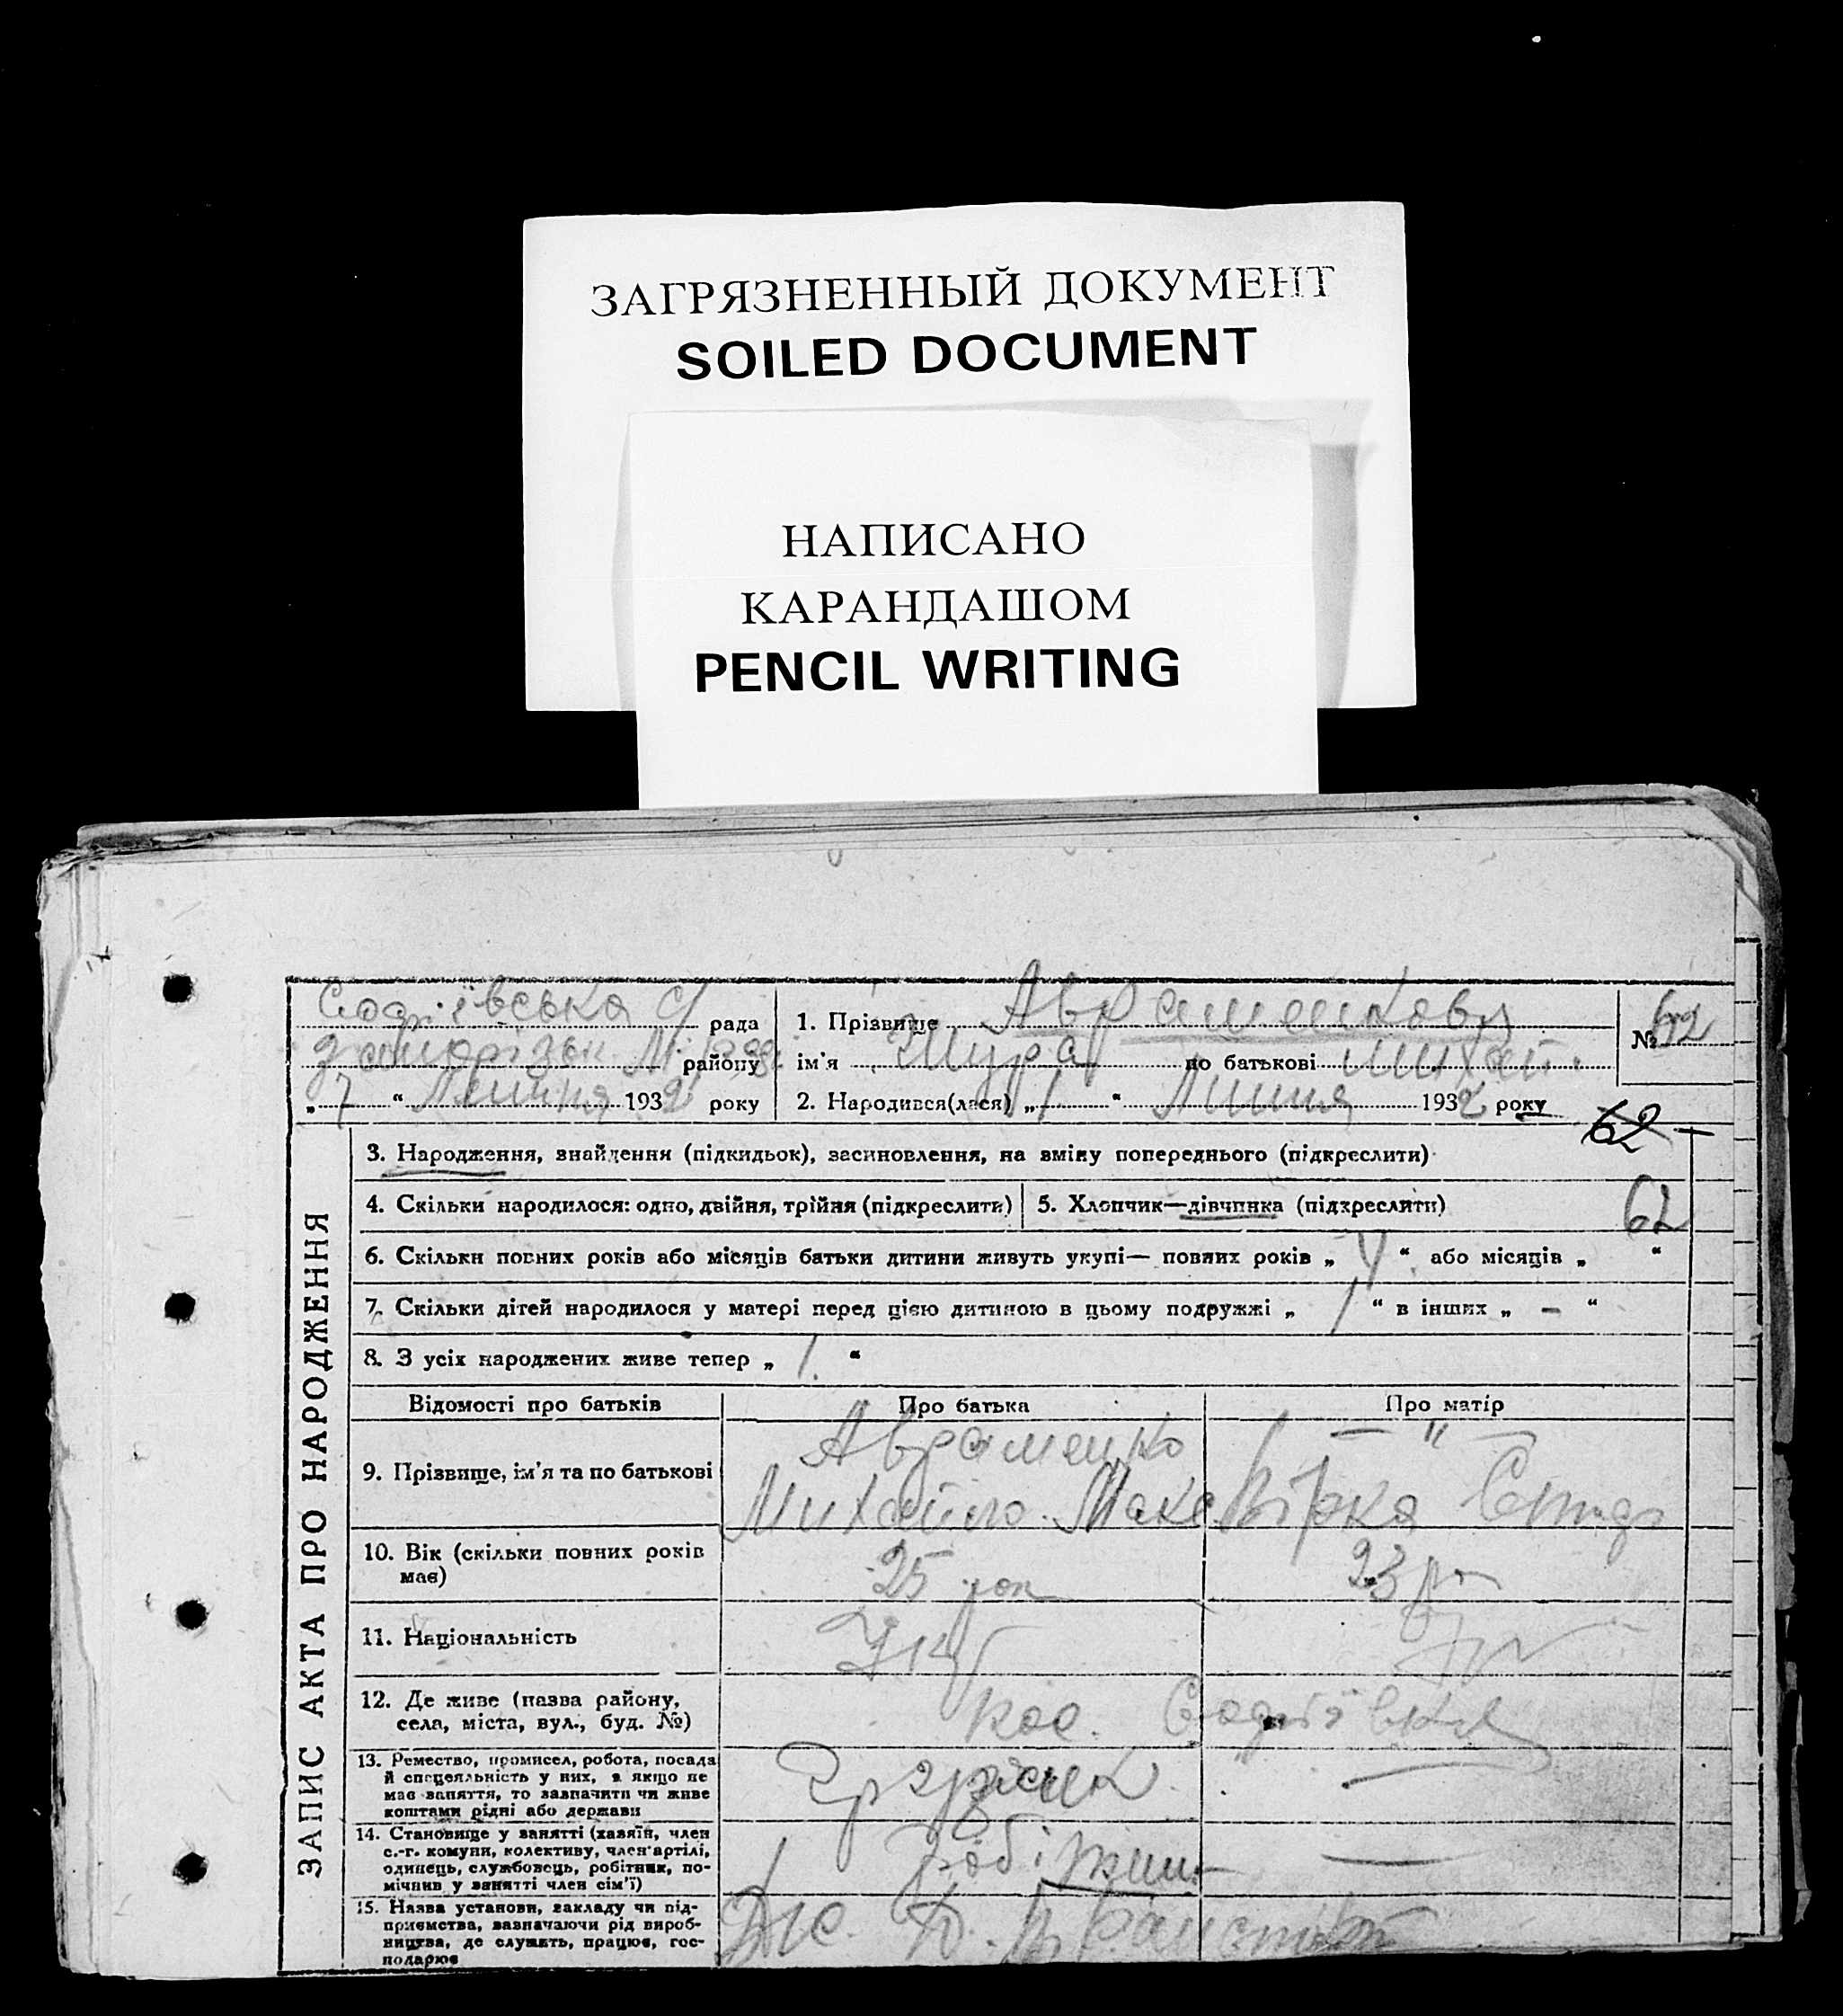 ЗАГРЯЗНЕННЫЙ ДОКУМЕНТ
SOILED DOCUMENT
НАПИСАНО
КАРАНДАШОМ
PENCIL WRITING
ЗАПИС АКТА ПРО НАРОДЖЕННЯ
Софіївська с/ рада
району
„ 7 “ Липня 1932 року
1. Прізвище Авраменкова
ім'я Шура по батькові Михай.
2. Народився(лася) „ 1 “ Липня 1932 року
№ 62
62
62
3. Народження, знайдення (підкидьок), всиновлення, на зміну попереднього (підкреслити)
4. Скільки народилося: одно, двійня, трійня (підкреслити)
5. Хлопчик—дівчинка (підкреслити)
6. Скільки повних років або місяців батьки дитини живуть укупі— повних років „ “ або місяців „ “
7. Скільки дітей народилося у матері перед цією дитиною в цьому подружжі „ 1 “ в інших „ — “
8. З усіх народжених живе тепер „ 1. “
Відомості про батьків Про батька Про матір
9. Прізвище, ім'я та по батькові
Авраменко — " —
Михайло
10. Вік (скільки повних років
має)
25 рок 23 р
11. Національність
Укр
12. Де живе (назва району,
села, міста, вул., буд. №)
Софіївка
13. Ремество, промисел, робота, посада
й спецеяльність у них, а якщо не
має заняття, то зазначити чи живе
коштами рідні або держави
—
14. Становище у занятті (хазяїн, член
с.-г. комуни, колективу, член артілі,
одинець, службовець, робітник, по-
мічник у занятті член сім'ї)
робітник —
15. Назва установи, закладу чи під-
приємства, зазначаючи рід вироб-
ництва, де служить, працює, гос-
подарює